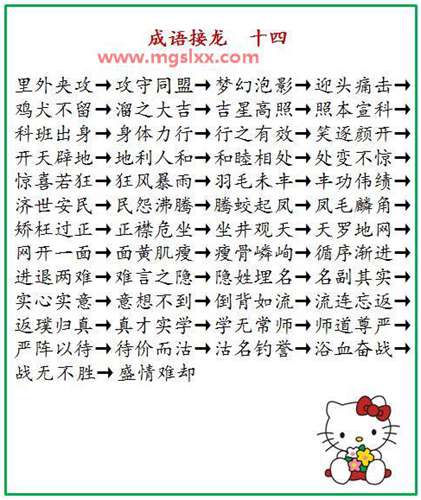 成语接龙 十四
www.mgslxx.com
里外夹攻→攻守同盟→梦幻泡影→迎头痛击→
鸡犬不留→溜之大吉→吉星高照→照本宣科→
科班出身→身体力行→行之有效→笑逐颜开→
开天辟地→地利人和→和睦相处→处变不惊→
惊喜若狂→狂风暴雨→羽毛未丰→丰功伟绩→
济世安民→民怨沸腾→腾蛟起凤→凤毛麟角→
矫枉过正→正襟危坐→坐井观天→天罗地网→
网开一面→面黄肌瘦→瘦骨嶙峋→循序渐进→
进退两难→难言之隐→隐姓埋名→名副其实→
实心实意→意想不到→倒背如流→流连忘返→
返璞归真→真才实学→学无常师→师道尊严→
严阵以待→待价而沽→沽名钓誉→浴血奋战→
战无不胜→盛情难却